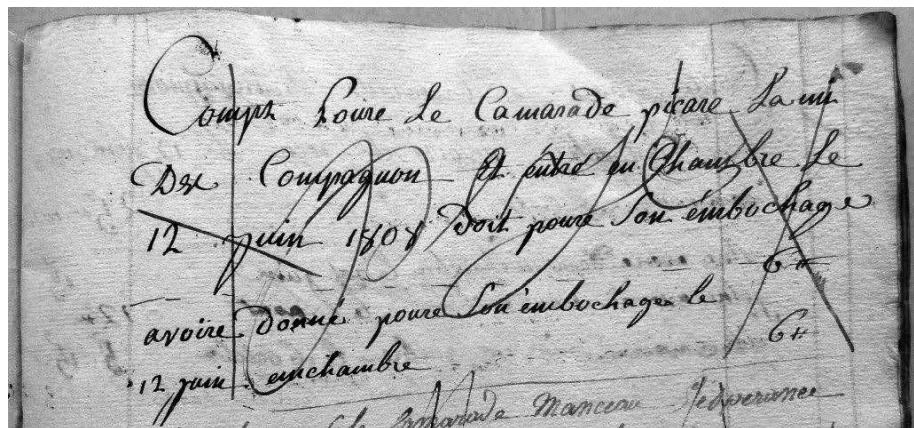 Compt Poure Le Camarade picare Lami
Des Compagnon Et entré en Chambre Le
12 juin 1808 Doit poure Son émbochage
6#
avoire donné poure Son émbochage le
6#
12 juin enchambre
Camarade Manceau